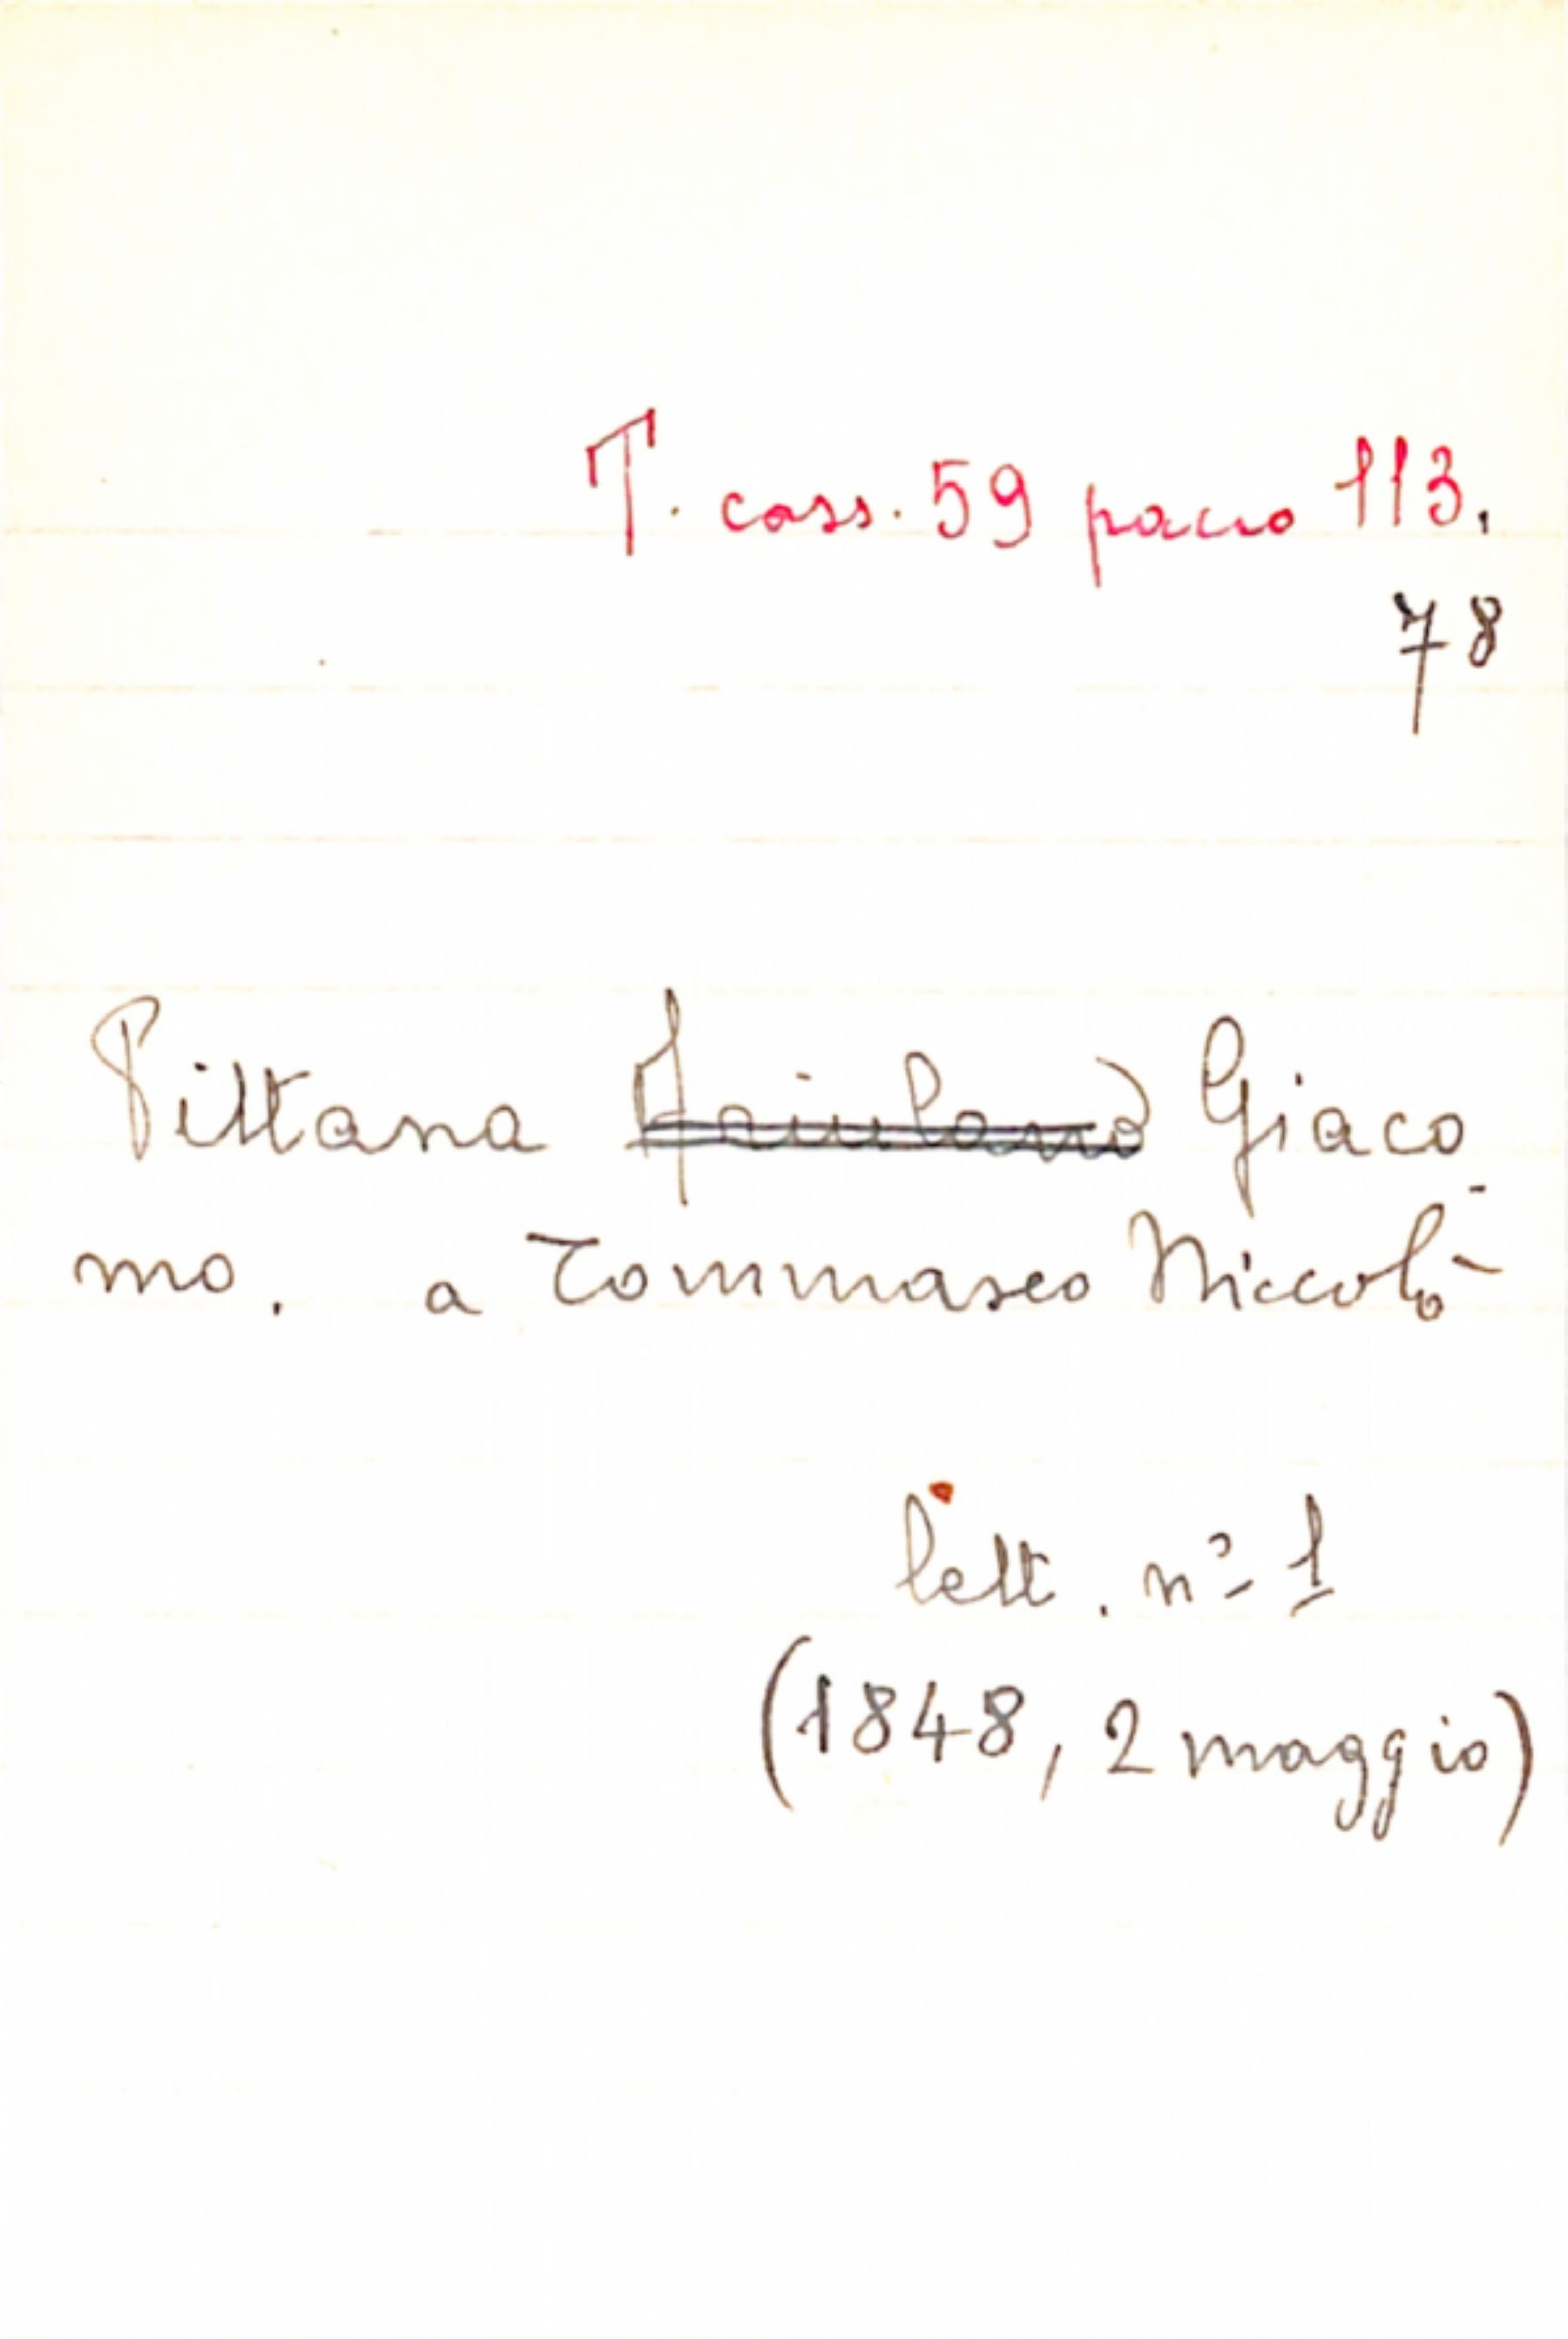 T. cass. 59 pacco 113.
78
Pittana Friulano Giaco
mo. a Tommaseo Niccolò
lett. nº 1
(1848, 2 maggio)